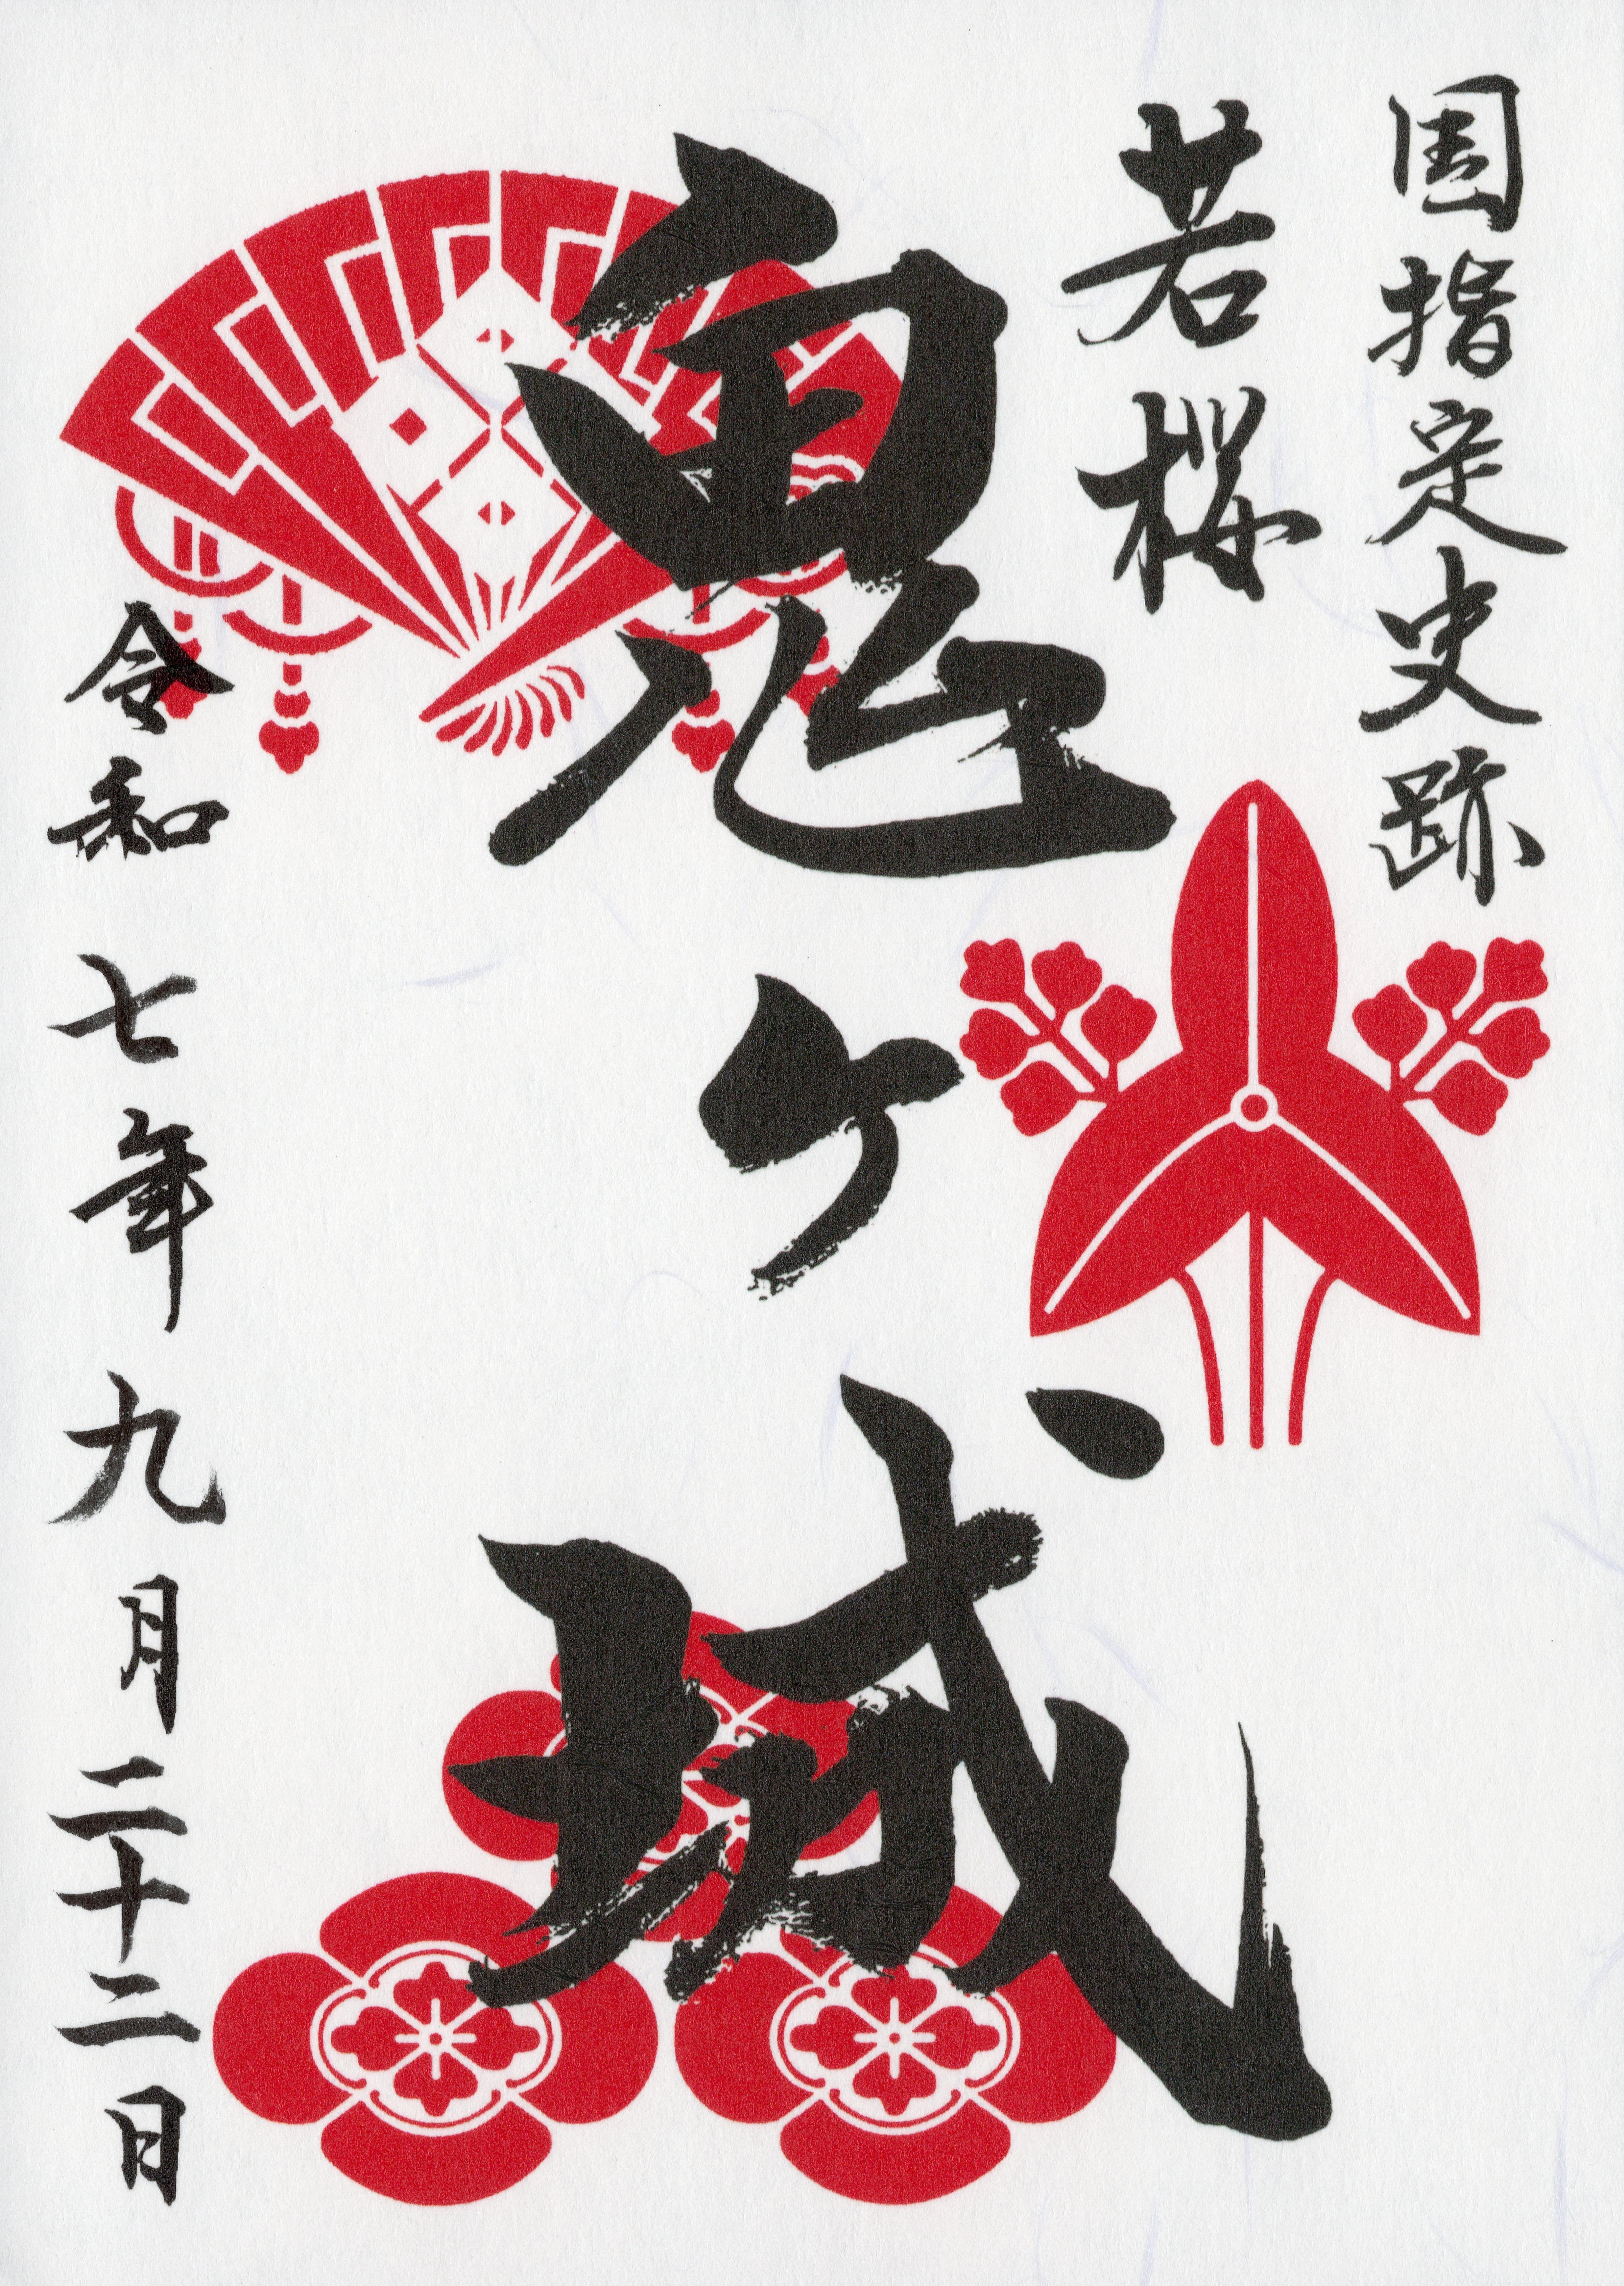 国指定史跡
若桜
鬼ヶ城
令和七年九月二十二日